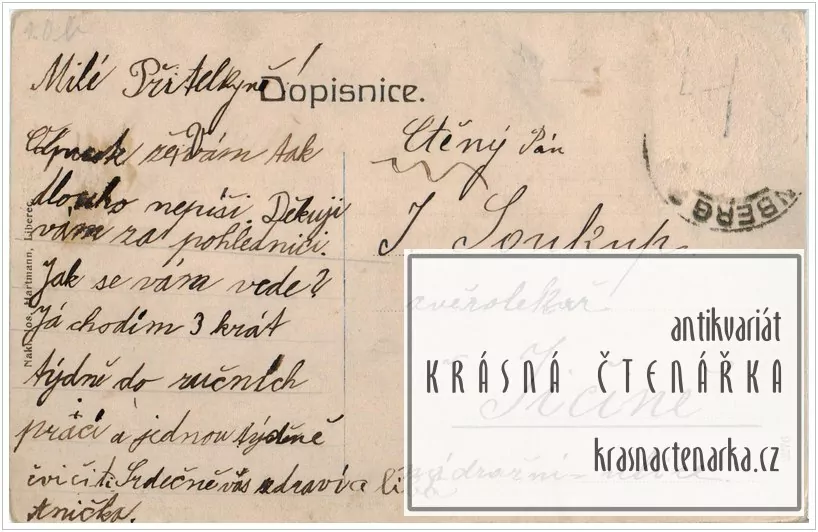 Milé Přítelkyně!
Dopisnice.
že Vám tak
dlouho nepíši. Děkuji
vám za pohlednici.
Jak se vám vede?
Já chodím 3 krát
týdně do ručních
prací a jednou týdně
cvičit. Srdečně vás zdraví a lí
Anička.
Ctěný Pán
J. Soukup
zvěrolékař
Jičíně
NBERG
Nakl. Jos. Hartmann, Liberec
antikvariát
KRÁSNÁ ČTENÁŘKA
krasnactenarka.cz